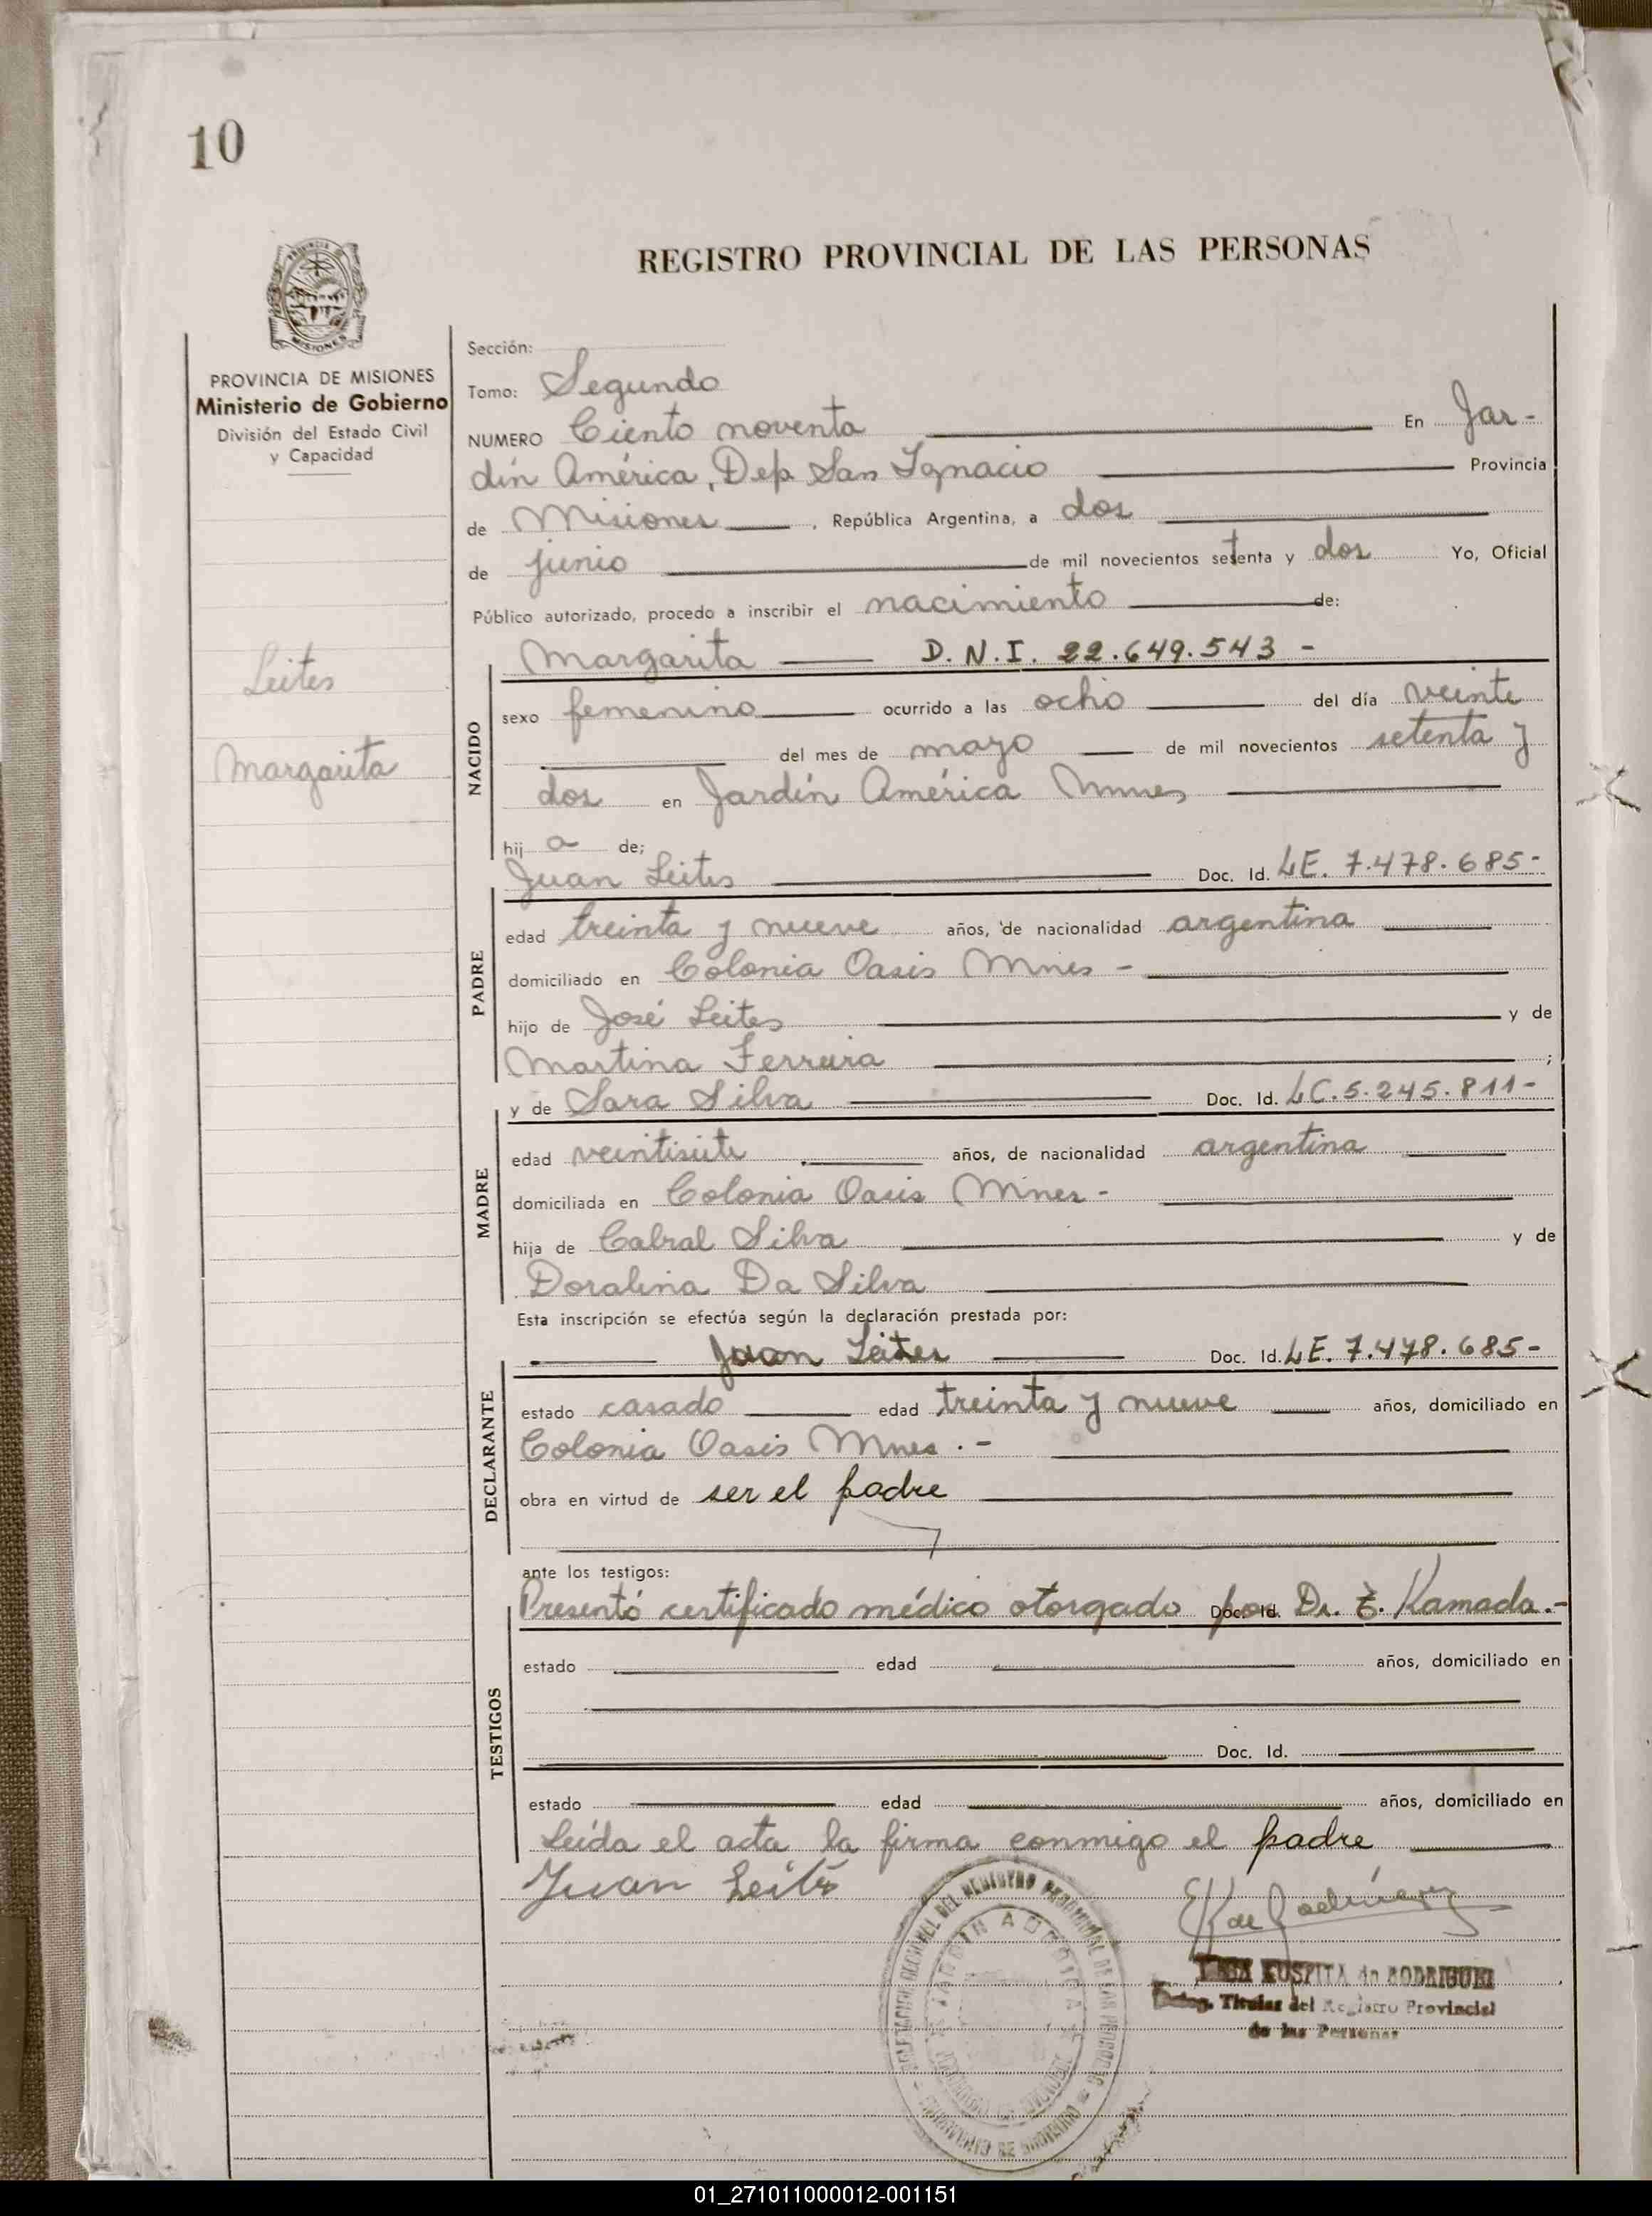 10
REGISTRO PROVINCIAL DE LAS PERSONAS
PROVINCIA DE MISIONES
Ministerio de Gobierno
División del Estado Civil
y Capacidad
Leites
Margarita
Sección:
Tomo: Segundo
NUMERO Ciento noventa En Jar-
dín América, Dep. San Ignacio Provincia
de Misiones, República Argentina, a dos
de junio de mil novecientos setenta y dos Yo, Oficial
Público autorizado, procedo a inscribir el nacimiento de:
Margarita D.N.I. 22.649.543 -
NACIDO
sexo femenino ocurrido a las ocho del día veinte
del mes de mayo de mil novecientos setenta y
dos en Jardín América Mnes
hij a de;
Juan Leites Doc. Id. LE. 7.478.685-
PADRE
edad treinta y nueve años, de nacionalidad argentina
domiciliado en Colonia Oasis Mnes -
hijo de José Leites y de
Martina Ferreira ;
y de Sara Silva Doc. Id. LC.5.245.811-
MADRE
edad veintisiete años, de nacionalidad argentina
domiciliada en Colonia Oasis Mnes-
hija de Cabral Silva y de
Doralina Da Silva
Esta inscripción se efectúa según la declaración prestada por:
Juan Leites Doc. Id. LE. 7.478.685-
DECLARANTE
estado casado edad treinta y nueve años, domiciliado en
Colonia Oasis Mnes.-
obra en virtud de ser el padre
ante los testigos:
Presentó certificado médico otorgado por Doc. Id. Dr. E. Kamada.-
TESTIGOS
estado edad años, domiciliado en
Doc. Id.
estado edad años, domiciliado en
Leída el acta la firma conmigo el padre
Juan Leites
de RODRIGUEZ
Deleg. Titular del Registro Provincial
de las Personas
01_271011000012-001151